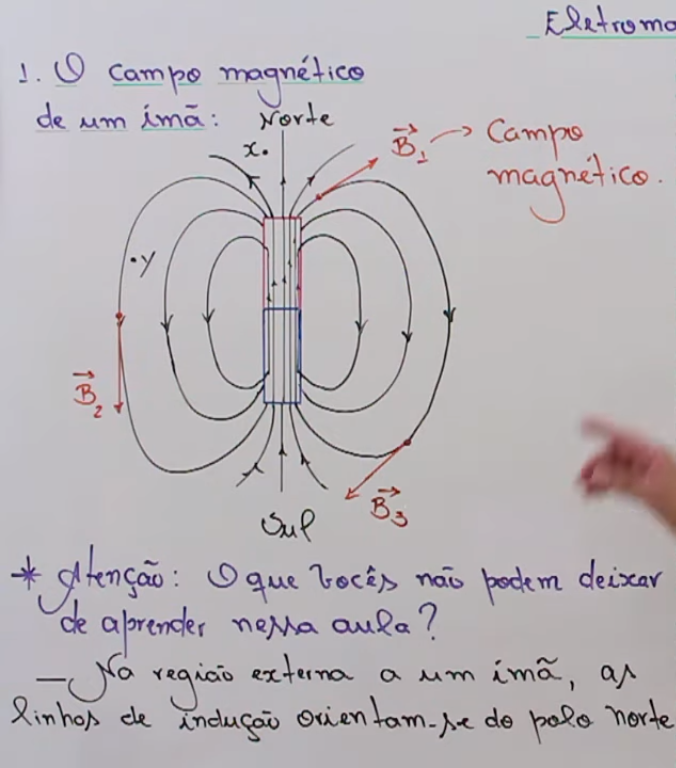 Eletroma
1. O campo magnético
de um ímã:
Norte
x.
B₁ → Campo
magnético.
.y
B₂
B₃
Sul
* Atenção: O que vocês não podem deixar
de aprender nessa aula?
— Na região externa a um ímã, as
linhas de indução orientam-se do polo norte